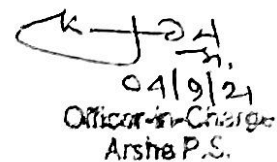 04/9/21
Officer-in-Charge
Arsha P.S.